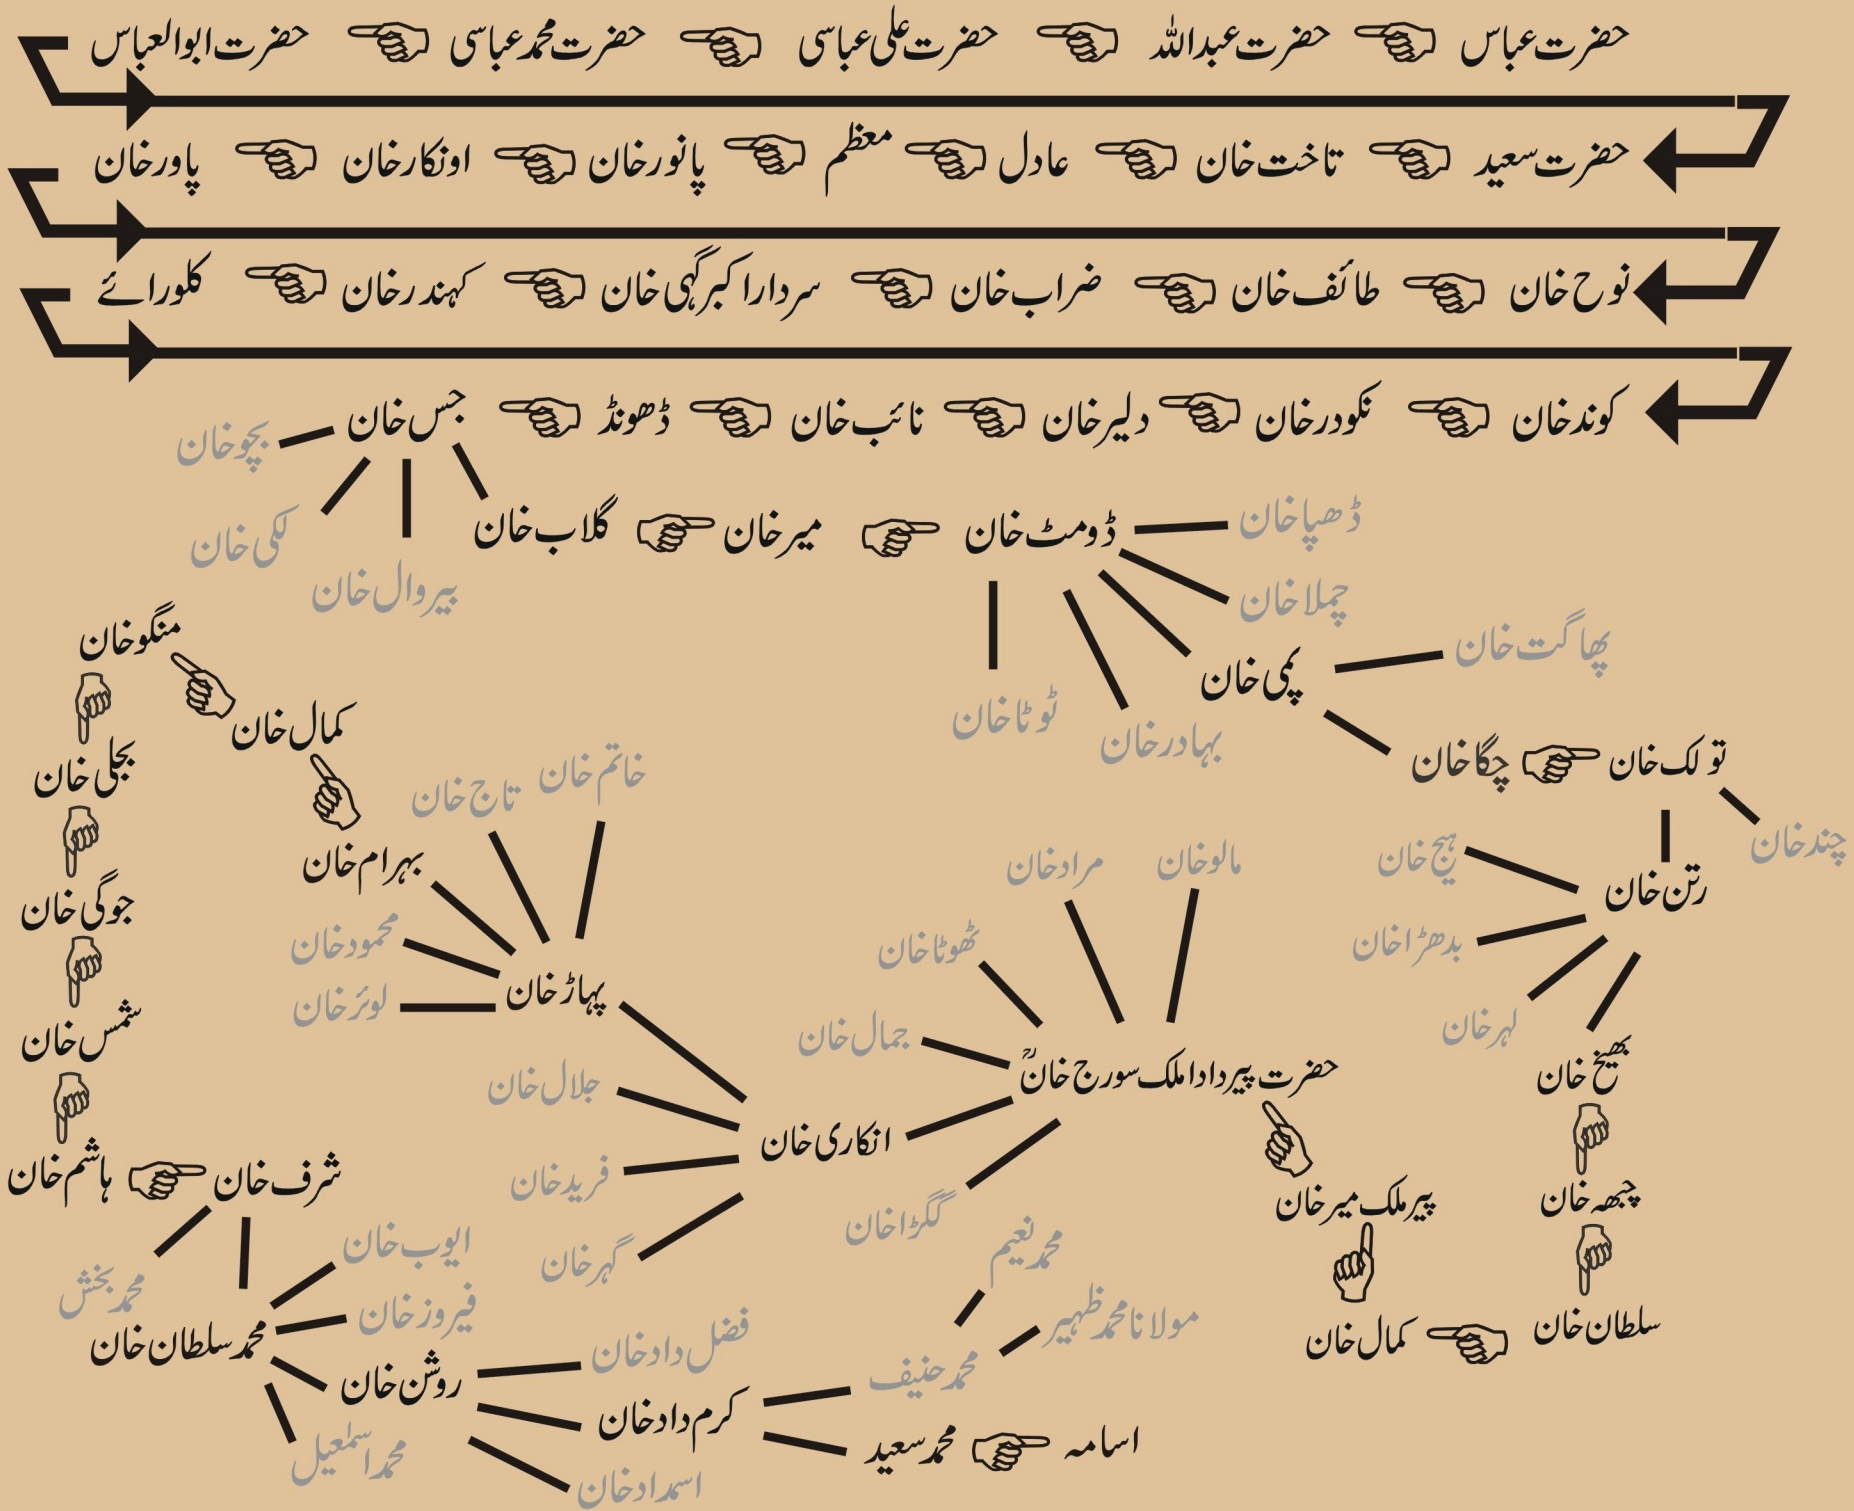 حضرت عباس حضرت عبداللہ حضرت علی عباسی حضرت محمد عباسی حضرت ابوالعباس
حضرت سعید تاخت خان عادل معظم پانور خان اونکار خان پاور خان
نوح خان طائف خان ضراب خان سردار اکبر گہی خان کہندر خان کلورائے
کوند خان نکودر خان دلیر خان نائب خان ڈھونڈ جس خان
بجو خان
لکی خان
بیروال خان
گلاب خان میر خان ڈومٹ خان
ڈھپا خان
چملا خان
پمی خان
بہادر خان
ٹوٹا خان
پھاگت خان
چگا خان تولک خان
چند خان
رتن خان
بیج خان
بدھڑا خان
لہر خان
بھیخ خان
چبھہ خان
سلطان خان
کمال خان
پیر ملک میر خان
حضرت پیر دادا ملک سورج خانؒ
مالو خان
مراد خان
ٹھوٹا خان
جمال خان
انکاری خان
گکڑا خان
جلال خان
فرید خان
گہر خان
پہاڑ خان
خاتم خان
تاج خان
بہرام خان
محمود خان
لوئر خان
کمال خان
منگو خان
بجلی خان
جوگی خان
شمس خان
ہاشم خان شرف خان
محمد بخش
محمد سلطان خان
ایوب خان
فیروز خان
روشن خان
محمد اسمٰعیل
فضل داد خان
کرم داد خان
اسمداد خان
محمد حنیف
محمد نعیم
مولانا محمد ظہیر
محمد سعید اسامہ